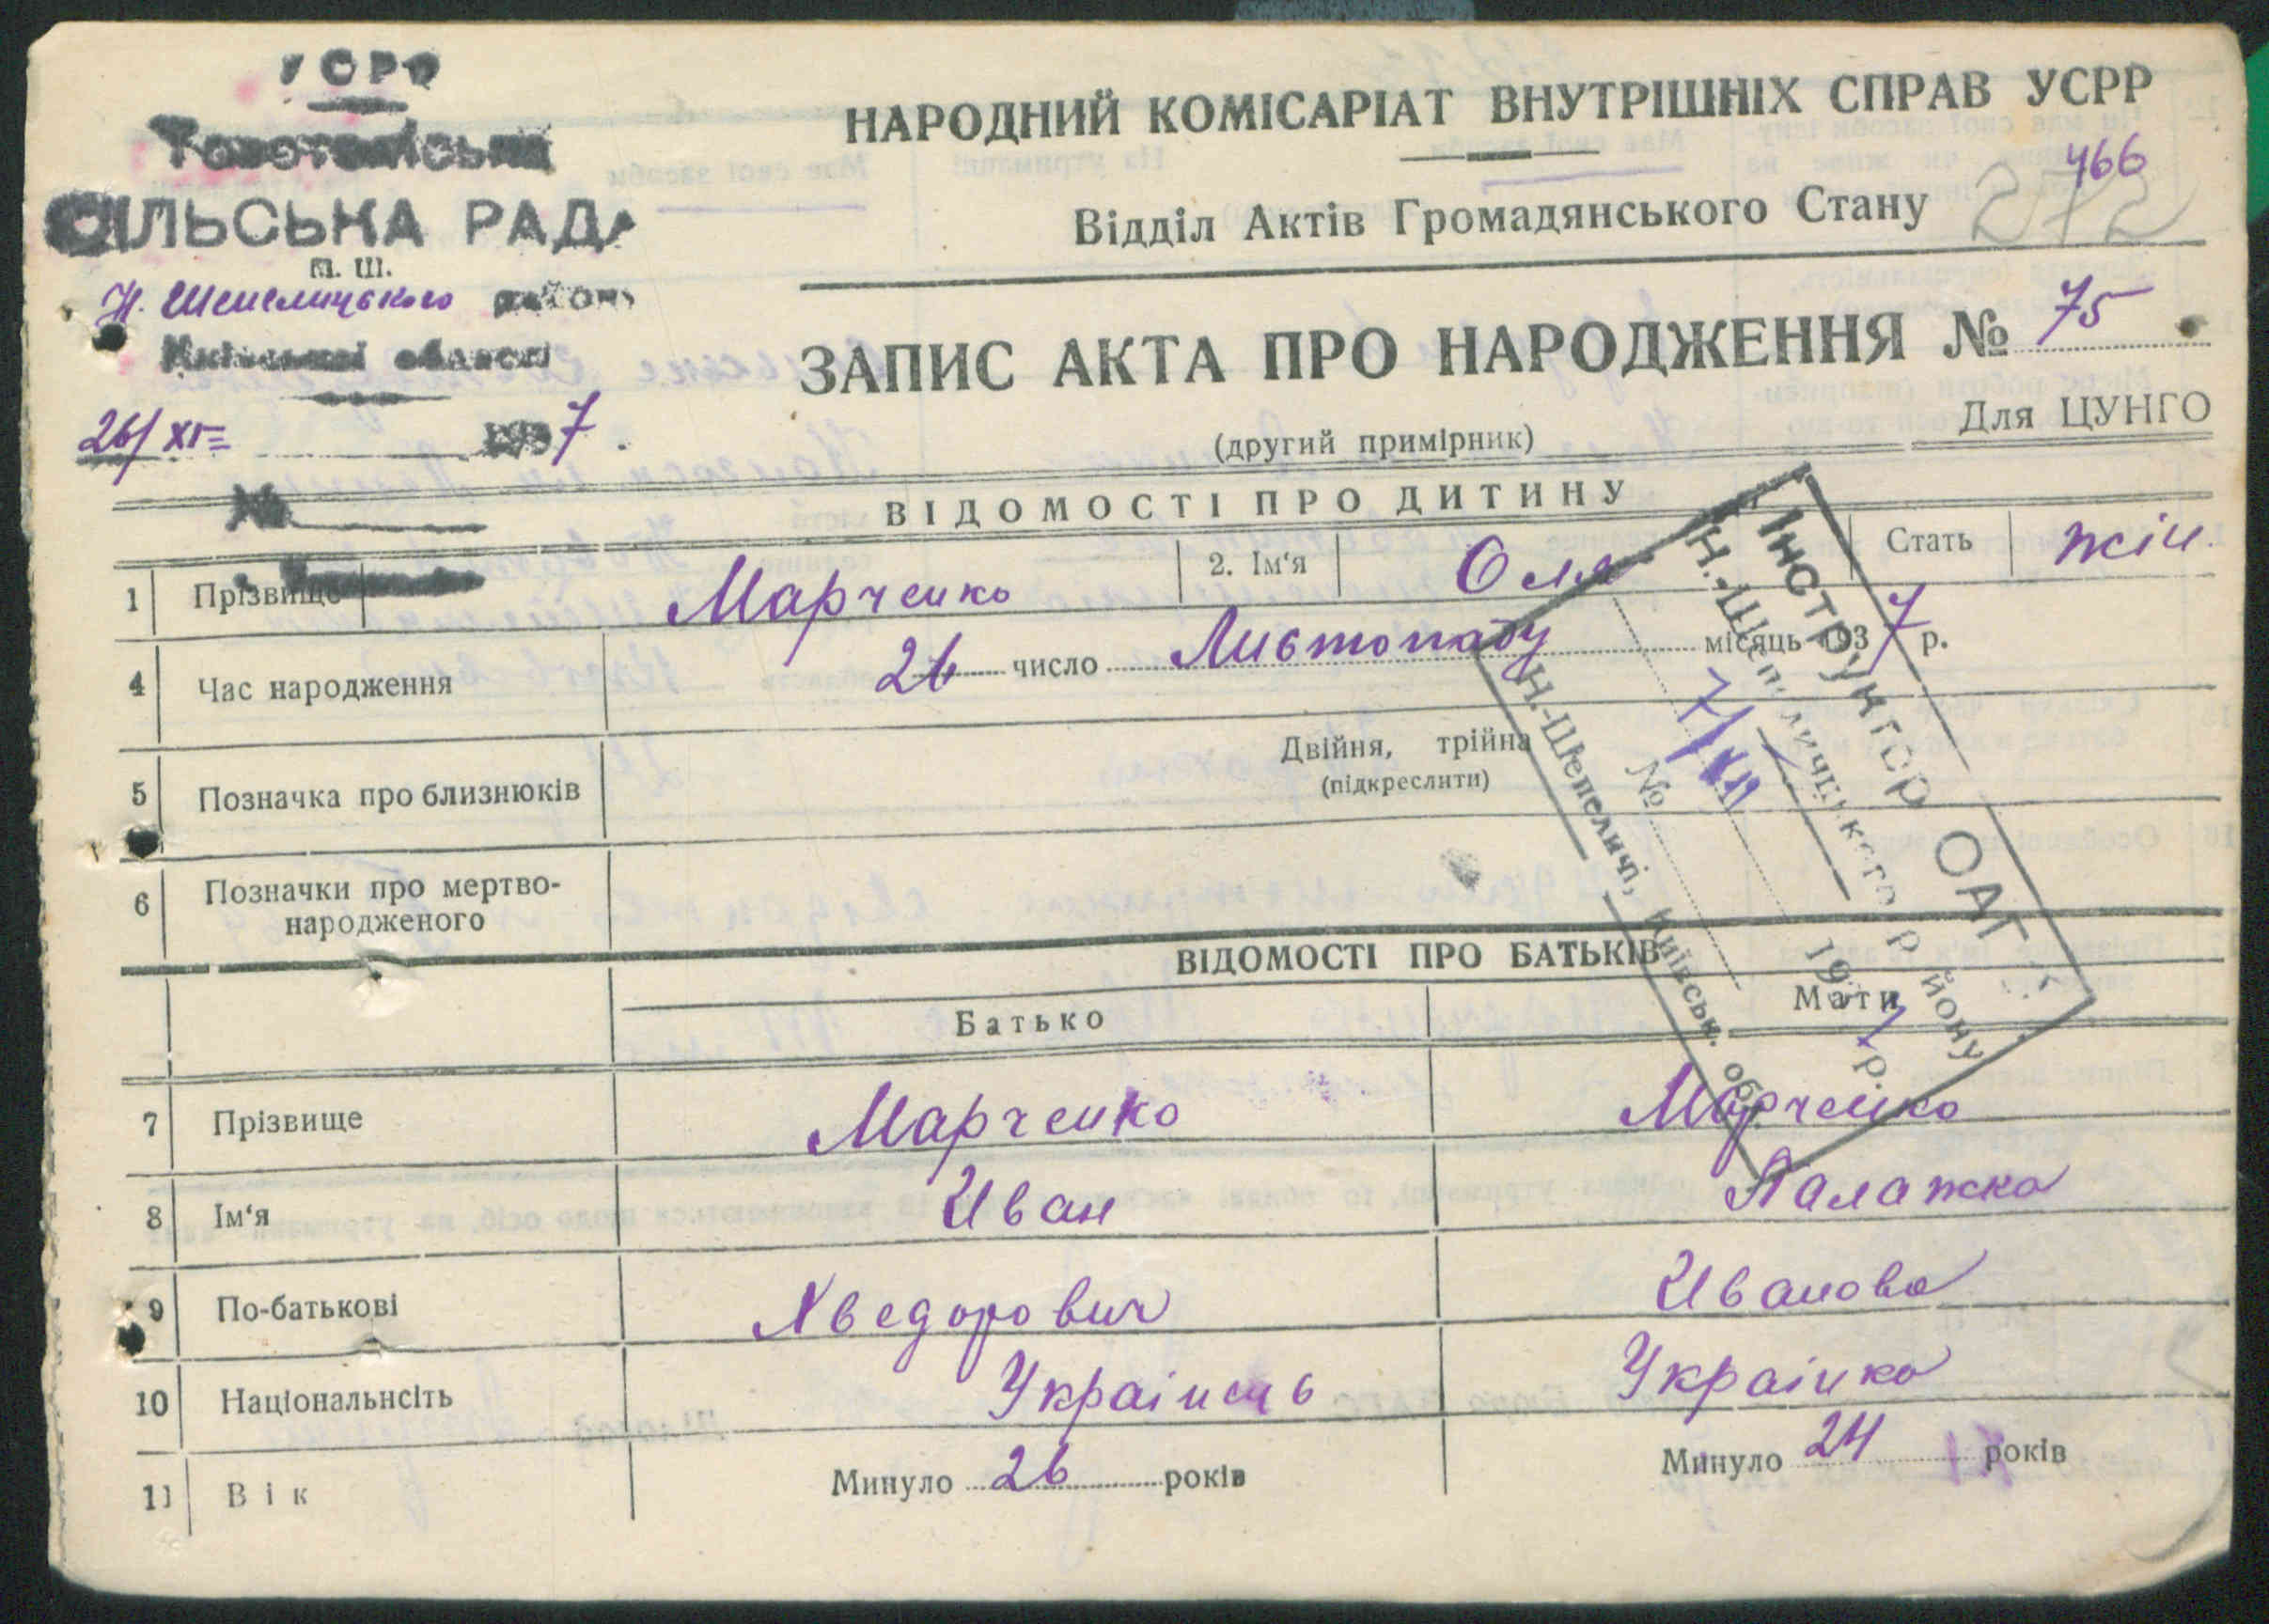 УСРР
Товстоліська
СІЛЬСЬКА РАДА
п. ш.
Н. Шепелицького району
Київської області
26/XI 1937
№
НАРОДНИЙ КОМІСАРІАТ ВНУТРІШНІХ СПРАВ УСРР
466
Відділ Актів Громадянського Стану 272
ЗАПИС АКТА ПРО НАРОДЖЕННЯ № 75
(другий примірник) Для ЦУНГО
ВІДОМОСТІ ПРО ДИТИНУ
1 Прізвище Марченко 2. Ім‘я Оля Стать жін.
4 Час народження 26 число Листопаду місяць 1937 р.
5 Позначка про близнюків Двійня, трійня
(підкреслити)
6 Позначки про мертво-
народженого
Інструктор ОАГС
Н.-Шепелицького району
7/XII
№ 1937 р.
Н.-Шепеличі, Київськ. обл.
ВІДОМОСТІ ПРО БАТЬКІВ
Батько Мати
7 Прізвище Марченко Марченко
8 Ім‘я Иван Палажка
9 По-батькові Хведорович Иванова
10 Національнсіть Українець Українка
11 Вік Минуло 26 років Минуло 24 років